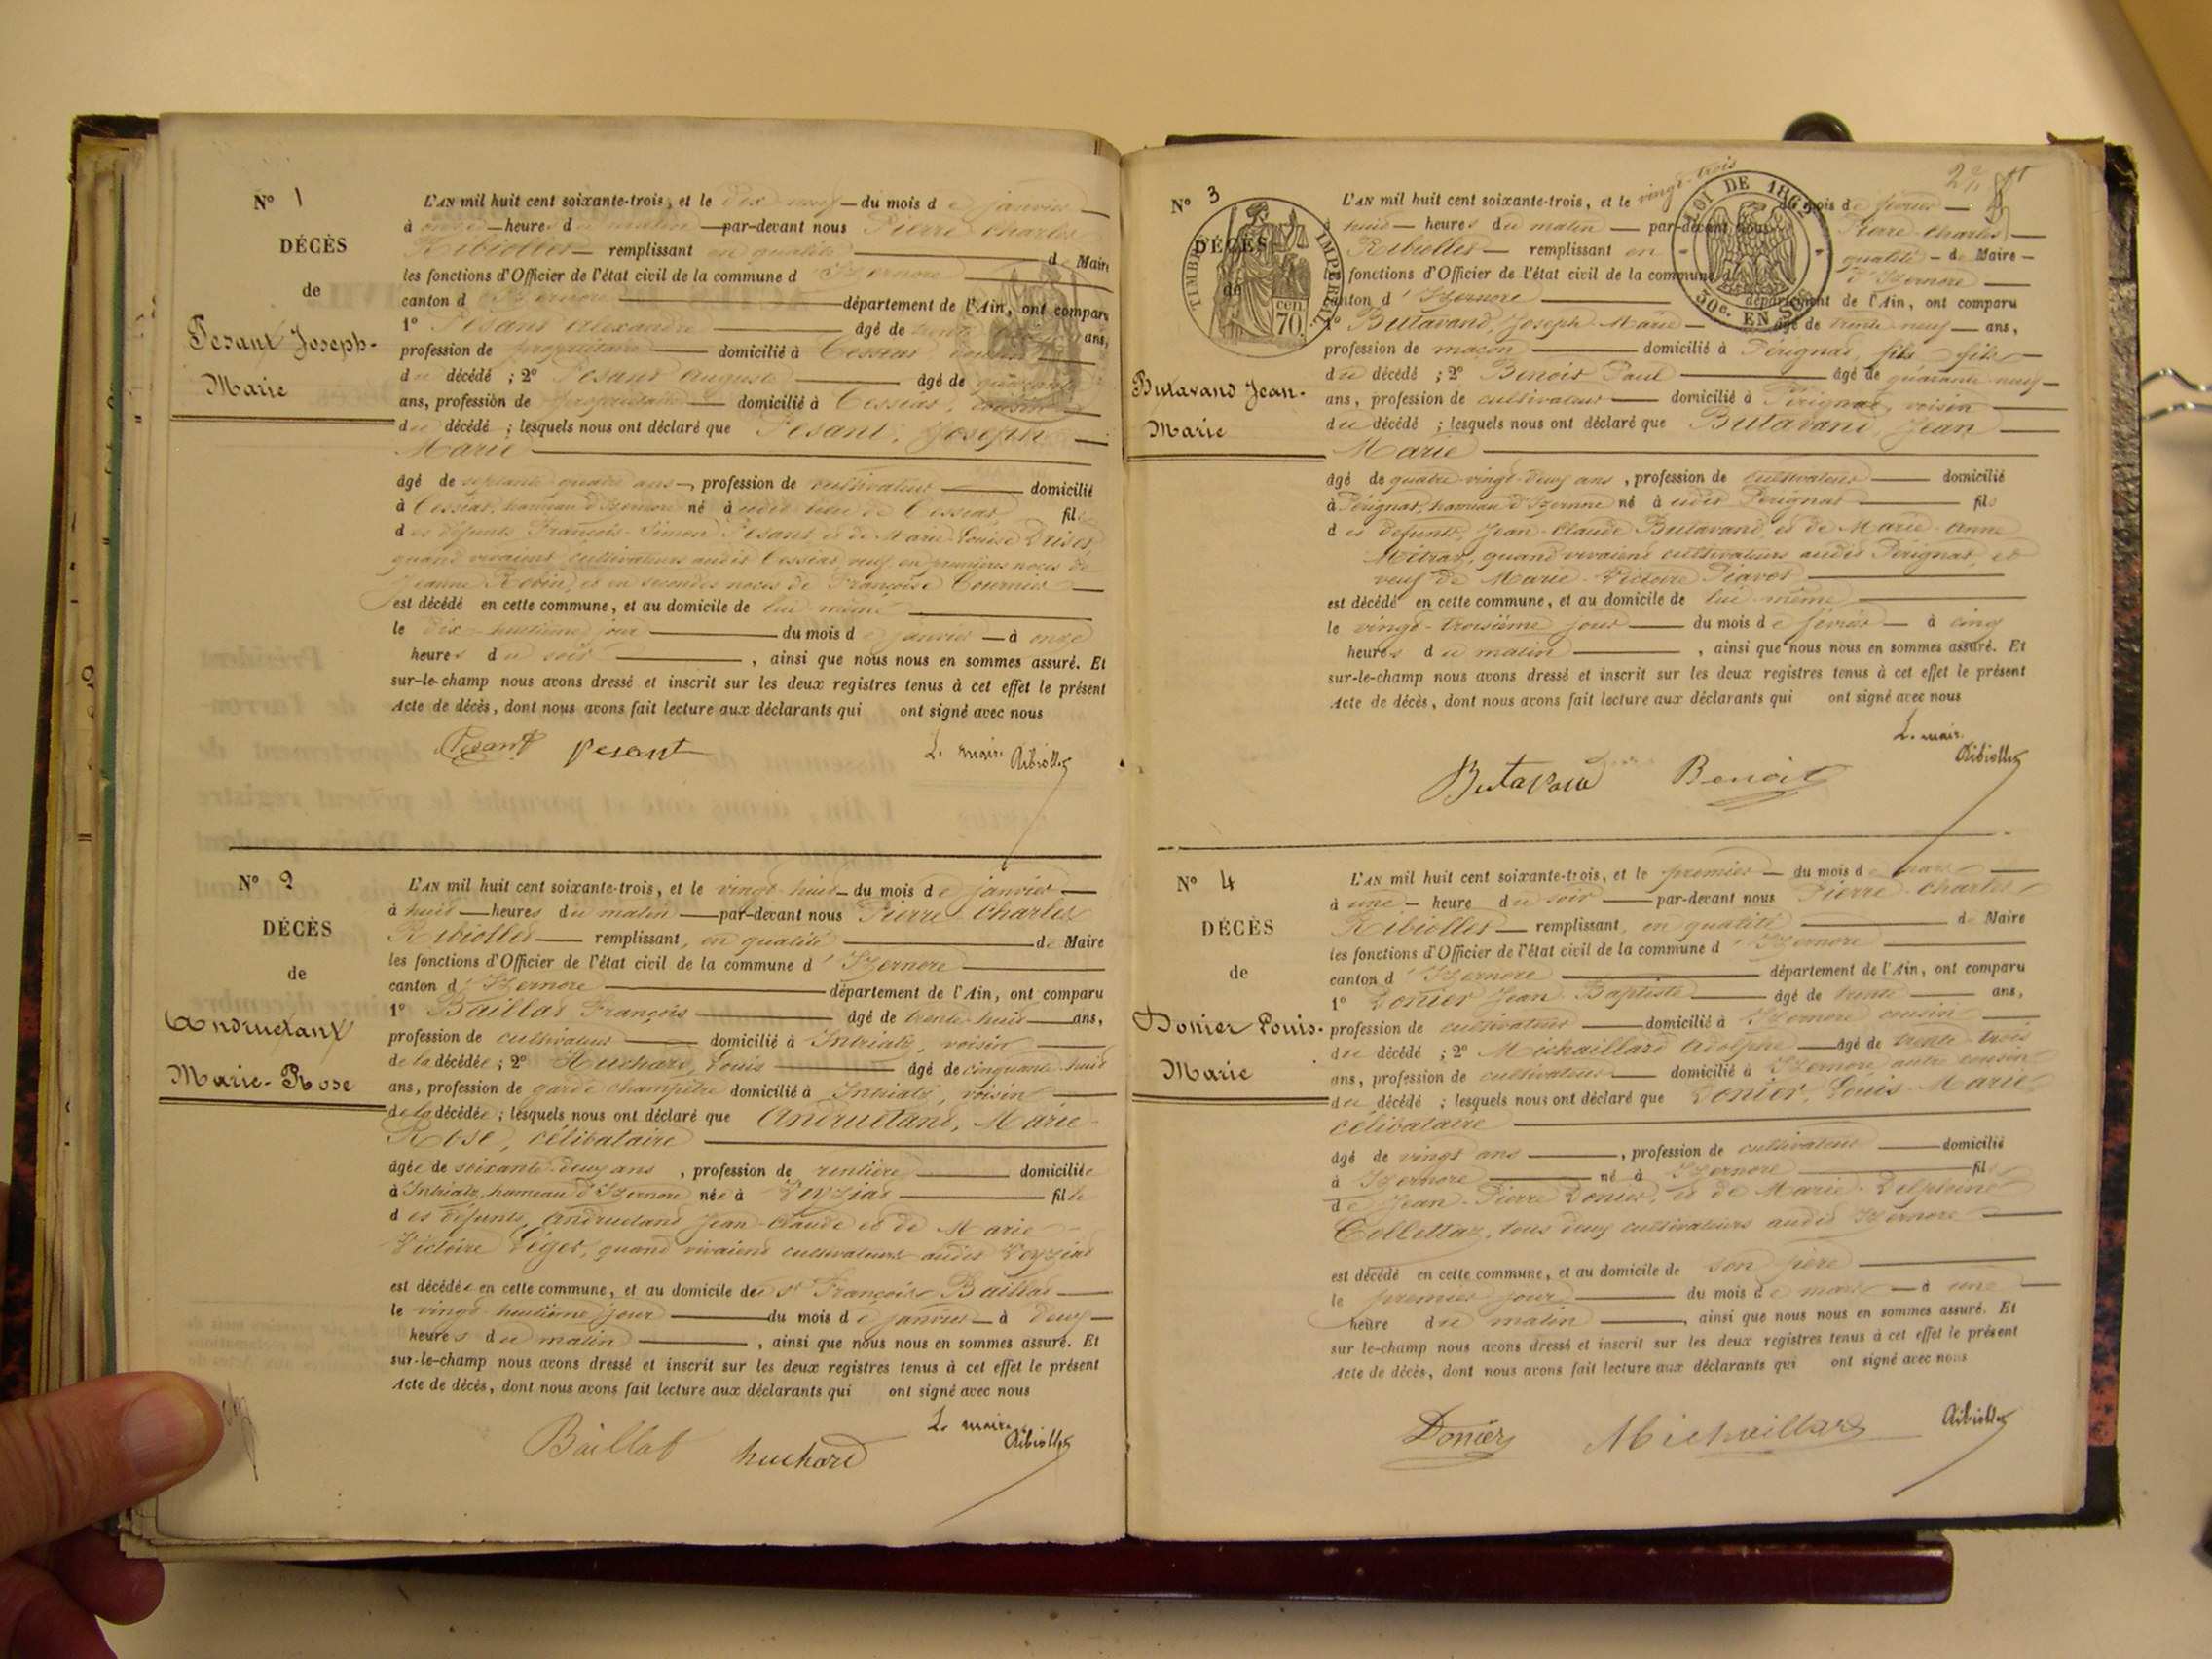 N° 1
DÉCÈS
de
Pesant Joseph-
Marie
L'AN mil huit cent soixante-trois, et le dix neuf du mois de janvier
à onze heures du matin par-devant nous Pierre Charles
Ribiollet remplissant en qualité de Maire
les fonctions d'Officier de l'état civil de la commune d'Izernore
canton d'Izernore département de l'Ain, ont comparu
1° Pesant Alexandre âgé de trente ans,
profession de propriétaire domicilié à Cessiat, cousin
du décédé ; 2° Pesant Auguste âgé de quarante
ans, profession de propriétaire domicilié à Cessiat, cousin
du décédé ; lesquels nous ont déclaré que Pesant, Joseph
Marie
âgé de septante quatre ans, profession de cultivateur domicilié
à Cessiat, hameau d'Izernore né à udit lieu de Cessiat fils
des défunts François-Simon Pesant et de Marie Louise
quand vivaient cultivateurs audit Cessiat veuf en premières noces de
Jeanne Robin, et en secondes noces de Françoise Tournier
est décédé en cette commune, et au domicile de lui même
le dix-huitième jour du mois de janvier à onze
heures du soir, ainsi que nous nous en sommes assuré. Et
sur-le-champ nous avons dressé et inscrit sur les deux registres tenus à cet effet le présent
Acte de décès, dont nous avons fait lecture aux déclarants qui ont signé avec nous
Pesant pesant Le maire Ribiollet
N° 2
DÉCÈS
de
Andruetant
Marie-Rose
L'AN mil huit cent soixante-trois, et le vingt huit du mois de janvier
à huit heures du matin par-devant nous Pierre Charles
Ribiollet remplissant, en qualité de Maire
les fonctions d'Officier de l'état civil de la commune d'Izernore
canton d'Izernore département de l'Ain, ont comparu
1° Baillat François âgé de trente-huit ans,
profession de cultivateur domicilié à Intriat, voisin
de la décédée ; 2° Huchard, Louis âgé de cinquante huit
ans, profession de garde champêtre domicilié à Intriat, voisin
de la décédée ; lesquels nous ont déclaré que Andruetant, Marie-
Rose, célibataire
âgée de soixante-deux ans, profession de rentière domiciliée
à Intriat, hameau d'Izernore née à Veyziat fille
des défunts Andruetant Jean-Claude et de Marie-
Victoire Léger, quand vivaient cultivateurs audit Veyziat
est décédée en cette commune, et au domicile du sr François Baillat
le vingt-huitième jour du mois de janvier à deux
heures du matin, ainsi que nous nous en sommes assuré. Et
sur-le-champ nous avons dressé et inscrit sur les deux registres tenus à cet effet le présent
Acte de décès, dont nous avons fait lecture aux déclarants qui ont signé avec nous
Baillat huchard Le maire Ribiollet
N° 3
DÉCÈS
de
Butavand Jean-
Marie
TIMBRE IMPERIAL
cen
70
LOI DE 1862
50c. EN SUS
L'AN mil huit cent soixante-trois, et le vingt-trois du mois de février
à huit heures du matin par-devant nous Pierre-Charles
Ribiollet remplissant en qualité de Maire
les fonctions d'Officier de l'état civil de la commune d'Izernore
canton d'Izernore département de l'Ain, ont comparu
1° Butavand, Joseph-Marie âgé de trente-neuf ans,
profession de maçon domicilié à Pérignat, fils
du décédé ; 2° Benoit Paul âgé de quarante-neuf
ans, profession de cultivateur domicilié à Pérignat, voisin
du décédé ; lesquels nous ont déclaré que Butavand, Jean
Marie
âgé de quatre-vingt-deux ans, profession de cultivateur domicilié
à Pérignat, hameau d'Izernore né à udit Pérignat fils
des défunts, Jean-Claude Butavand et de Marie-Anne
quand vivaient cultivateurs audit Pérignat, et
veuf de Marie-Victoire
est décédé en cette commune, et au domicile de lui même
le vingt-troisième jour du mois de février à cinq
heures du matin, ainsi que nous nous en sommes assuré. Et
sur-le-champ nous avons dressé et inscrit sur les deux registres tenus à cet effet le présent
Acte de décès, dont nous avons fait lecture aux déclarants qui ont signé avec nous
Butavand Benoit Le maire Ribiollet
N° 4
DÉCÈS
de
Donier Louis-
Marie
L'AN mil huit cent soixante-trois, et le premier du mois de mars
à une heure du soir par-devant nous Pierre-Charles
Ribiollet remplissant, en qualité de Maire
les fonctions d'Officier de l'état civil de la commune d'Izernore
canton d'Izernore département de l'Ain, ont comparu
1° Donier Jean-Baptiste âgé de trente ans,
profession de cultivateur domicilié à Izernore cousin
du décédé ; 2° Michaillard Adolphe âgé de trente-trois
ans, profession de cultivateur domicilié à Izernore, autre cousin
du décédé ; lesquels nous ont déclaré que Donier, Louis-Marie
célibataire
âgé de vingt ans, profession de cultivateur domicilié
à Izernore né à Izernore fils
de Jean-Pierre Donier, et de Marie-Delphine
Collettaz, tous deux cultivateurs audit Izernore
est décédé en cette commune, et au domicile de son père
le premier jour du mois de mars à une
heure du matin, ainsi que nous nous en sommes assuré. Et
sur-le-champ nous avons dressé et inscrit sur les deux registres tenus à cet effet le présent
Acte de décès, dont nous avons fait lecture aux déclarants qui ont signé avec nous
Donier Michaillard Ribiollet